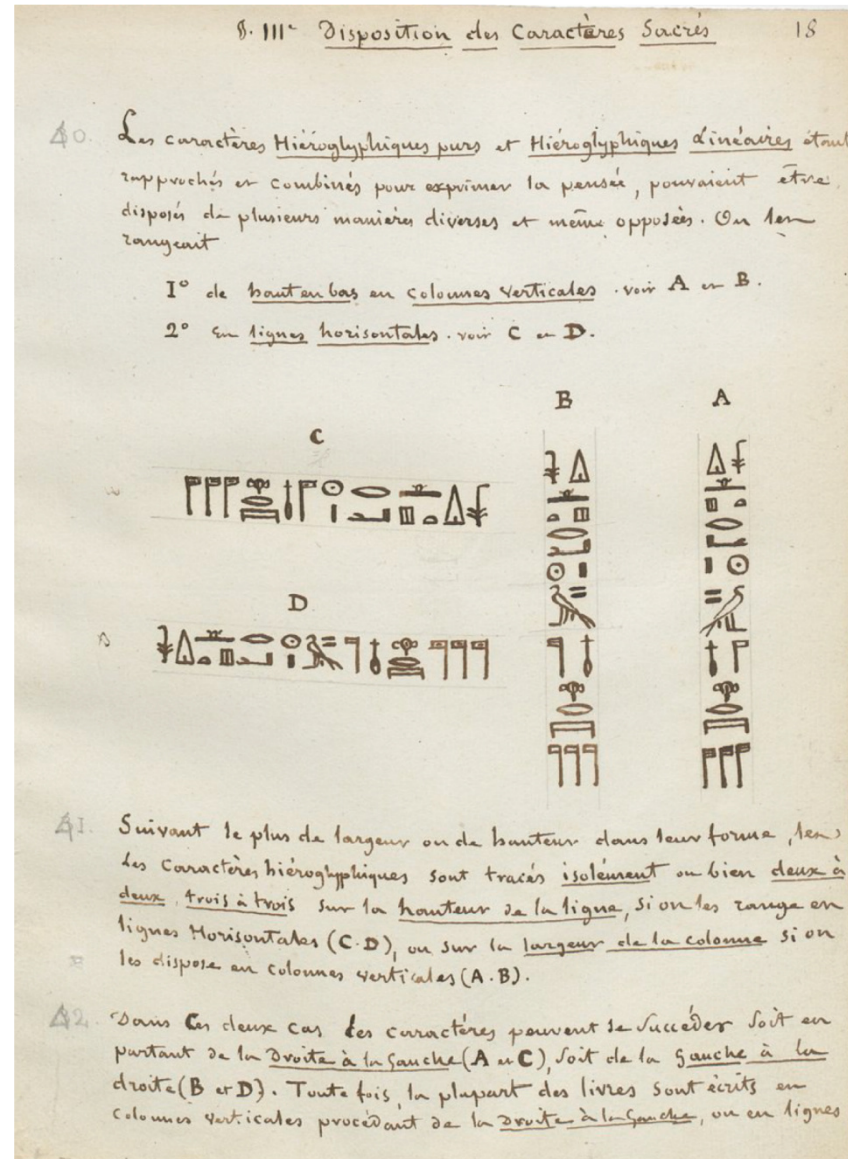 §. IIIe Disposition des Caractères Sacrés 18
40. Les caractères Hiéroglyphiques purs et Hiéroglyphiques Linéaires étant
rapprochés et combinés pour exprimer la pensée, pouvaient être
disposés de plusieurs manières diverses et même opposées. On les
rangeait
1° de haut en bas en colonnes verticales. voir A et B.
2° En lignes horisontales. voir C et D.
B A
C
D
41. Suivant le plus de largeur ou de hauteur dans leur forme, les
Les caractères hiéroglyphiques sont tracés isolément ou bien deux à
deux, trois à trois sur la hauteur de la ligne, si on les range en
lignes Horisontales (C.D), ou sur la largeur de la colonne si on
les dispose en colonnes verticales (A.B).
42. Dans Ces deux cas les caractères peuvent se succéder soit en
partant de la Droite à la Gauche (A et C), soit de la Gauche à la
droite (B et D). Toute fois, la plupart des livres sont écrits en
colonnes verticales procédant de la Droite à la Gauche, ou en lignes